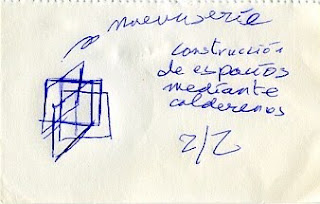 nueva serie
construcción
de espacios
mediante
2/2